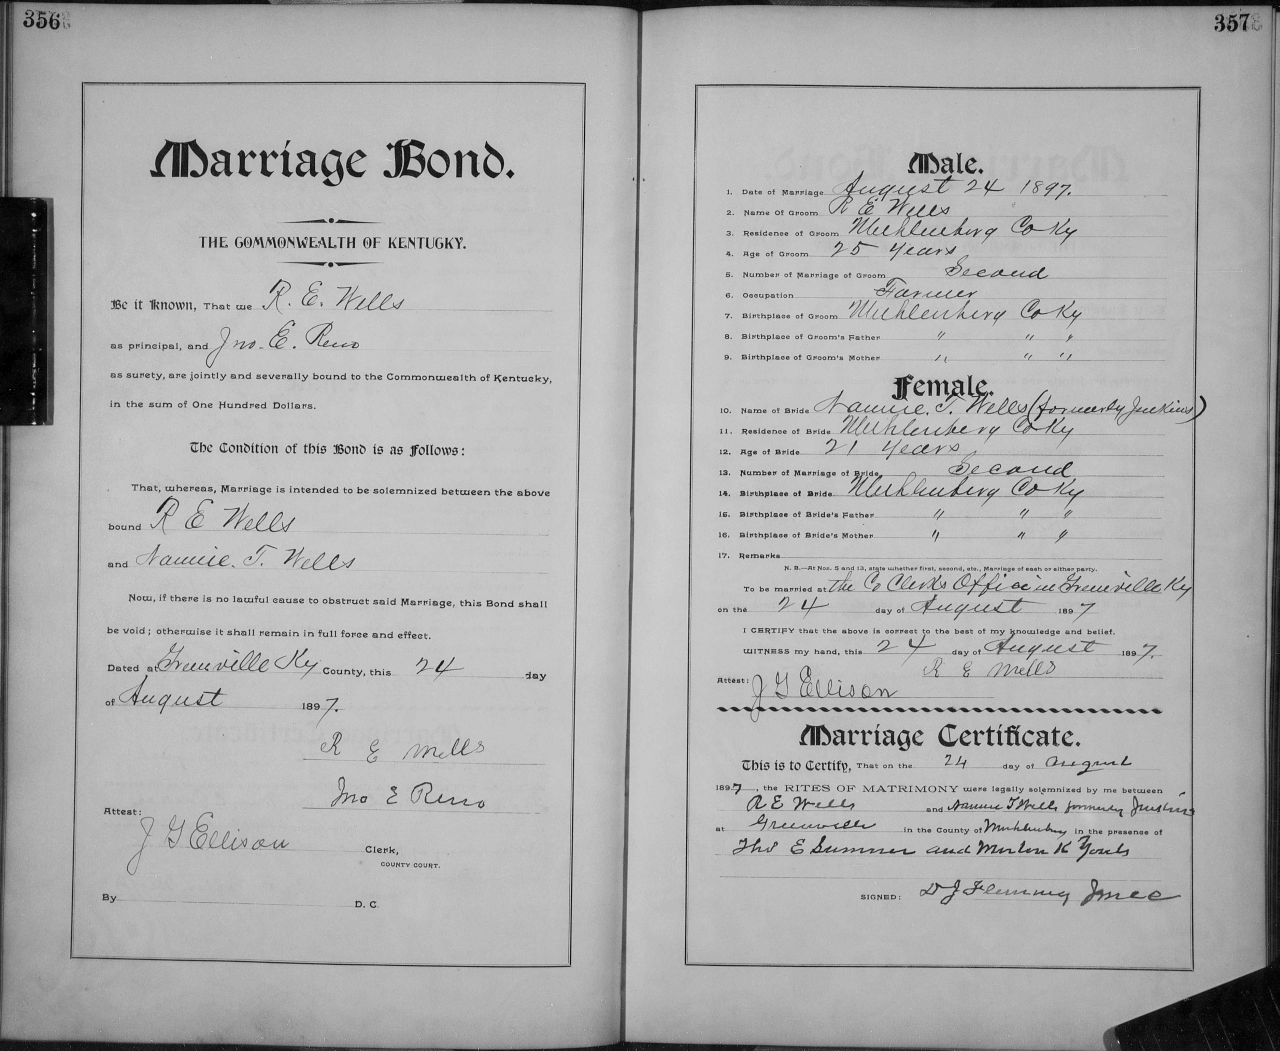 356
Marriage Bond.
THE COMMONWEALTH OF KENTUCKY.
Be it Known, That we R. E. Wells
as principal, and Jno. E. Reno
as surety, are jointly and severally bound to the Commonwealth of Kentucky,
in the sum of One Hundred Dollars.
The Condition of this Bond is as Follows:
That, whereas, Marriage is intended to be solemnized between the above
bound R E Wells
and Nannie. T. Wells
Now, if there is no lawful cause to obstruct said Marriage, this Bond shall
be void; otherwise it shall remain in full force and effect.
Dated at Greenville Ky County, this 24 day
of August 1897.
R E Wells
Jno E Reno
Attest:
J G Ellison Clerk,
COUNTY COURT.
By D. C.
357
Male.
1. Date of Marriage August 24 1897.
2. Name Of Groom R E Wells
3. Residence of Groom Muhlenberg Co Ky
4. Age of Groom 25 Years
5. Number of Marriage of Groom Second
6. Occupation Farmer
7. Birthplace of Groom Muhlenberg Co Ky
8. Birthplace of Groom's Father " " "
9. Birthplace of Groom's Mother " " "
Female.
10. Name of Bride Nannie. T. Wells (formerly Jenkins)
11. Residence of Bride Muhlenberg Co Ky
12. Age of Bride 21 Years
13. Number of Marriage of Bride Second
14. Birthplace of Bride Muhlenberg Co Ky
15. Birthplace of Bride's Father " " "
16. Birthplace of Bride's Mother " " "
17. Remarks
N. B.—At Nos. 5 and 13, state whether first, second, etc., Marriage of each or either party.
To be married at the Co Clerks Office in Greenville Ky
on the 24 day of August 1897
I CERTIFY that the above is correct to the best of my knowledge and belief.
WITNESS my hand, this 24 day of August 1897.
R E Wells
Attest: J G Ellison
Marriage Certificate.
This is to Certify, That on the 24 day of August
1897, the RITES OF MATRIMONY were legally solemnized by me between
R E Wells and Nannie T Wells formerly Jenkins
at Greenville in the County of Muhlenberg in the presence of
Thos E Sumner and Morton K Yonts
SIGNED: D J Fleming